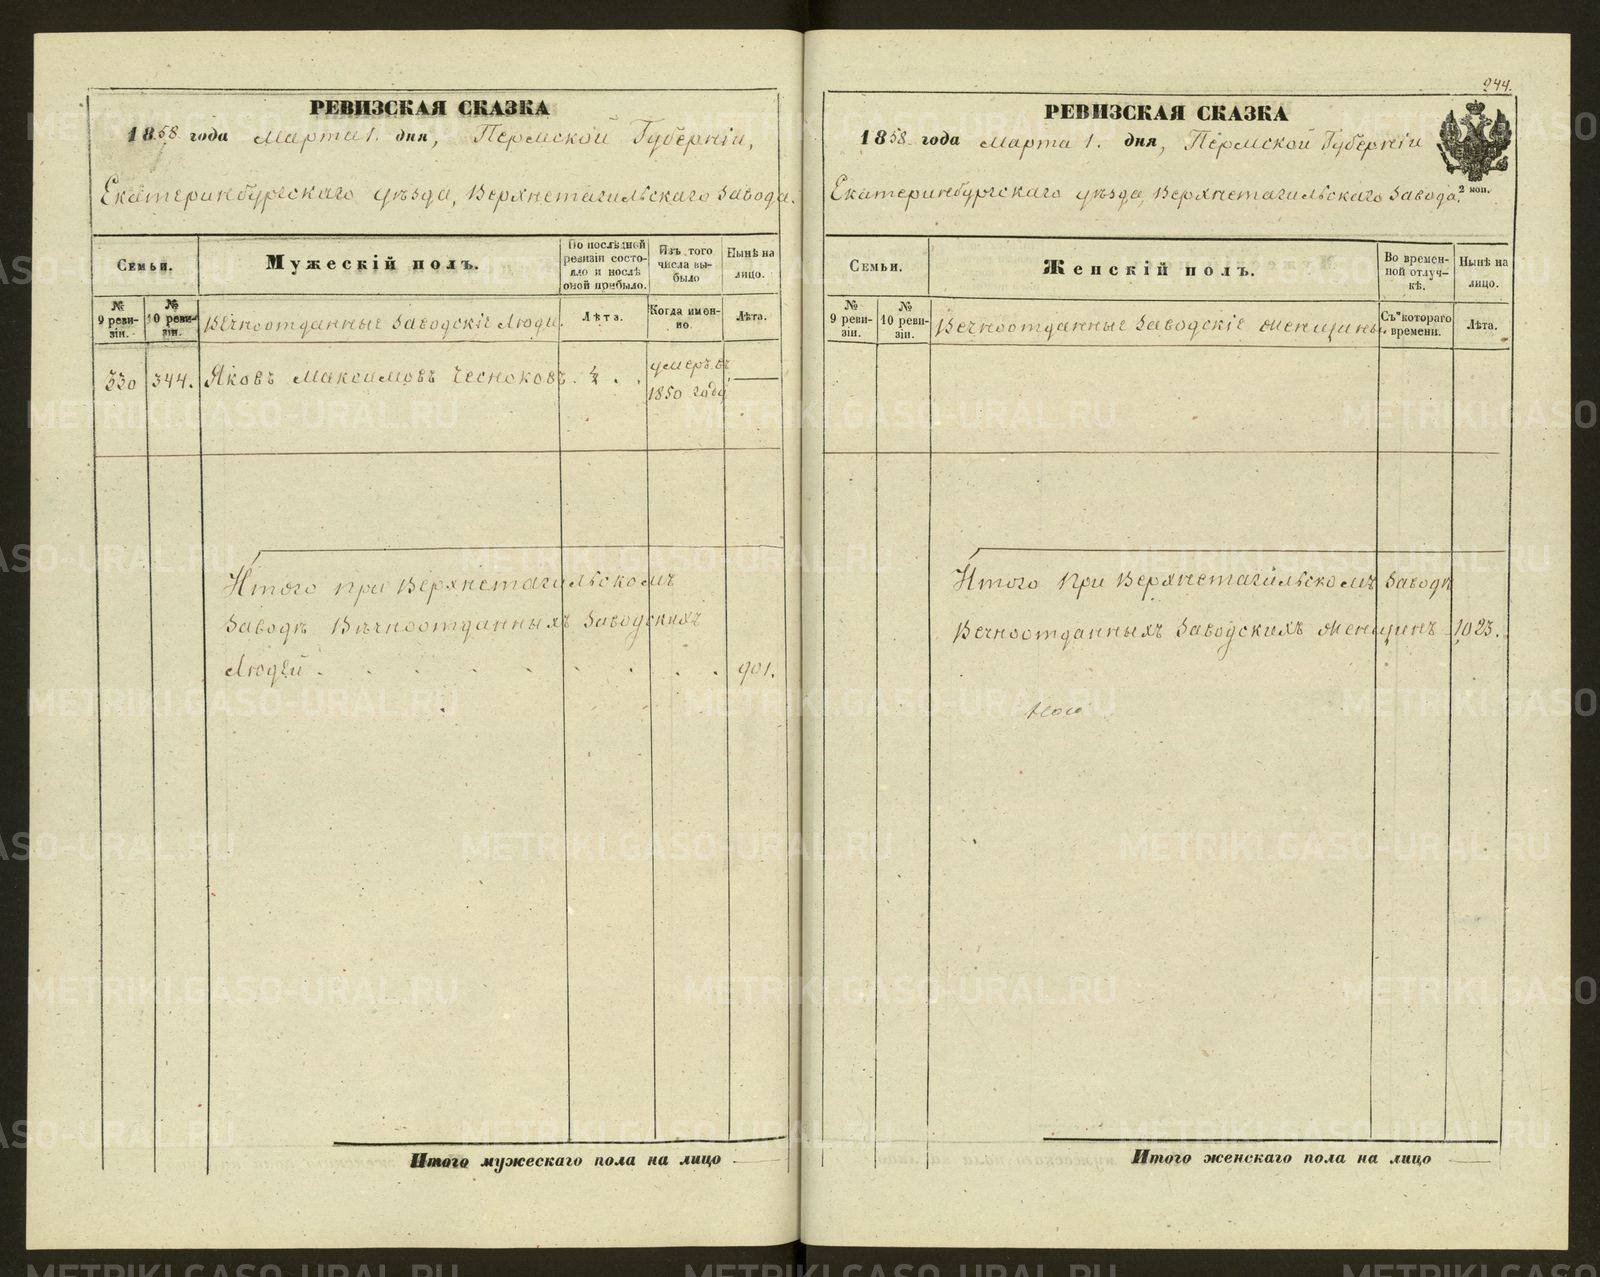 РЕВИЗСКАЯ СКАЗКА
1858 года Марта 1. дня, Пермской Губерніи,
Екатеринбургскаго уѣзда, Верхнетагильскаго Завода.
Семьи.
Мужескій полъ.
По последней ревизіи состояло и послѣ оной прибыло.
Изъ того числа выбыло
Нынѣ на лицо.
№ 9 ревизіи.
№ 10 ревизіи.
Вечноотданные Заводскіе Люди.
Лѣта.
Когда именно.
Лѣта.
330 344. Яковъ Максимовъ Чесноковъ. умеръ въ 1850 году
Итого при Верхнетагильскомъ
Заводѣ Вѣчноотданныхъ Заводскихъ
Людей . . . . . . . . 901.
Итого мужескаго пола на лицо
944.
РЕВИЗСКАЯ СКАЗКА
1858 года Марта 1. дня, Пермской Губерніи
Екатеринбургскаго уѣзда, Верхнетагильскаго Завода.
2 коп.
Семьи.
Женскій полъ.
Во временной отлучкѣ.
Нынѣ на лицо.
№ 9 ревизіи.
№ 10 ревизіи.
Вечноотданные Заводскіе Женщины.
Съ котораго времени.
Лѣта.
Итого при Верхнетагильскомъ Заводѣ
Вечноотданныхъ Заводскихъ Женщинъ 1023.
Итого женскаго пола на лицо
METRIKI.GASO-URAL.RU